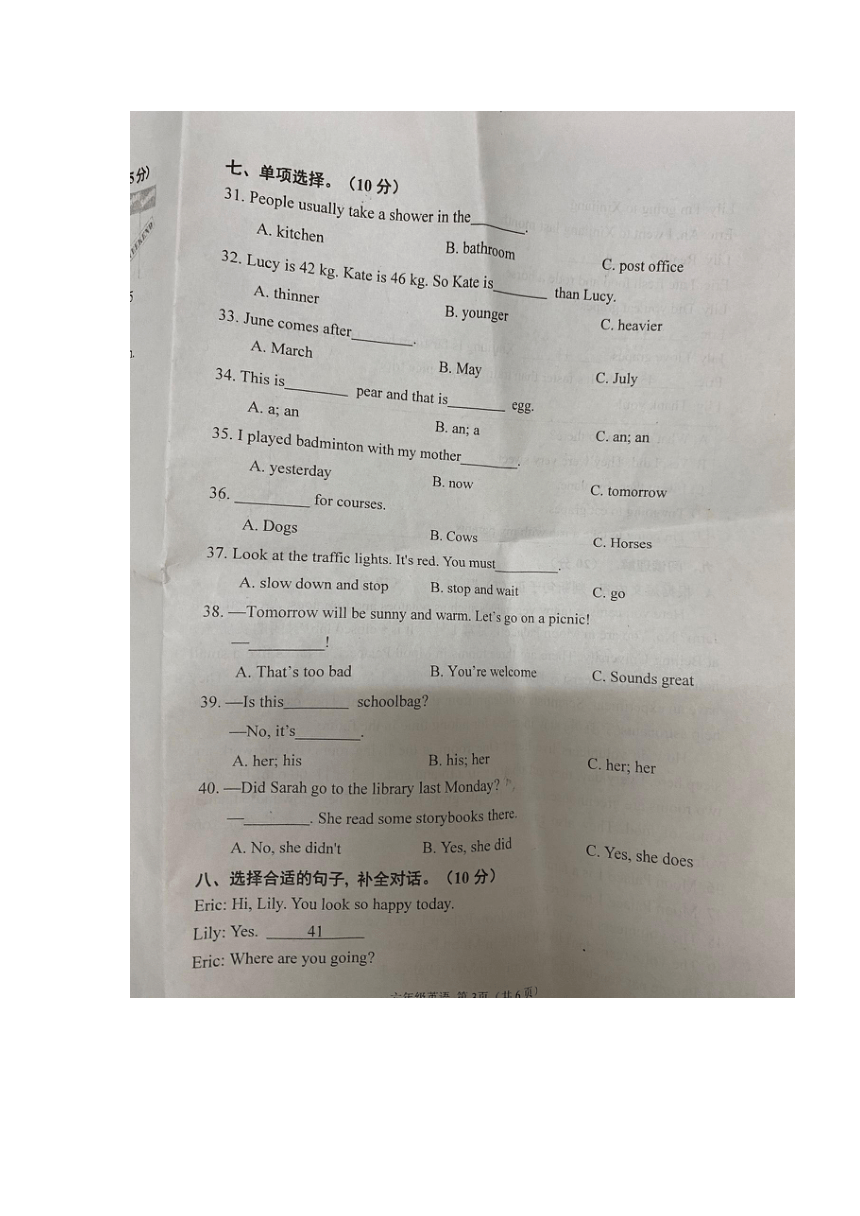 5分)
WEEKEND
七、单项选择。（10 分）
31. People usually take a shower in the________.
A. kitchen B. bathroom C. post office
32. Lucy is 42 kg. Kate is 46 kg. So Kate is________ than Lucy.
A. thinner B. younger C. heavier
33. June comes after________.
A. March B. May C. July
34. This is________ pear and that is________ egg.
A. a; an B. an; a C. an; an
35. I played badminton with my mother________.
A. yesterday B. now C. tomorrow
36. ________ for courses.
A. Dogs B. Cows C. Horses
37. Look at the traffic lights. It's red. You must________.
A. slow down and stop B. stop and wait C. go
38. —Tomorrow will be sunny and warm. Let's go on a picnic!
—________!
A. That's too bad B. You're welcome C. Sounds great
39. —Is this________ schoolbag?
—No, it's________.
A. her; his B. his; her C. her; her
40. —Did Sarah go to the library last Monday?
—________. She read some storybooks there.
A. No, she didn't B. Yes, she did C. Yes, she does
八、选择合适的句子, 补全对话。（10 分）
Eric: Hi, Lily. You look so happy today.
Lily: Yes. ____41____
Eric: Where are you going?
六年级英语 第3页（共6页）